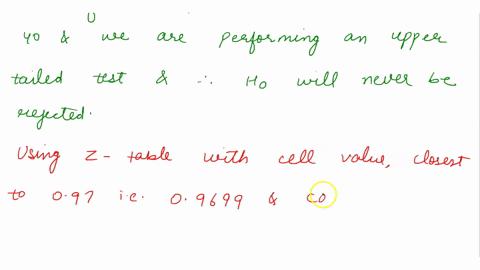 U
40 & we are performing an upper
tailed test & ∴ H0 will never be
rejected.
Using Z-table with cell value, closest
to 0.97 i.e. 0.9699 & co